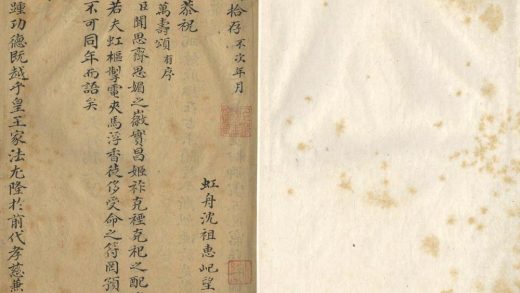 拾存 不次年月
虹舟沈祖惠屺望
恭祝
萬壽頌有序
臣聞思齊思媚之徽實昌姬祚克禋克祀之配
若夫虹樞掣電夾馬浮香徒侈受命之符罔預
不可同年而語矣
踵功德既越乎皇王家法尤隆於前代孝慈兼